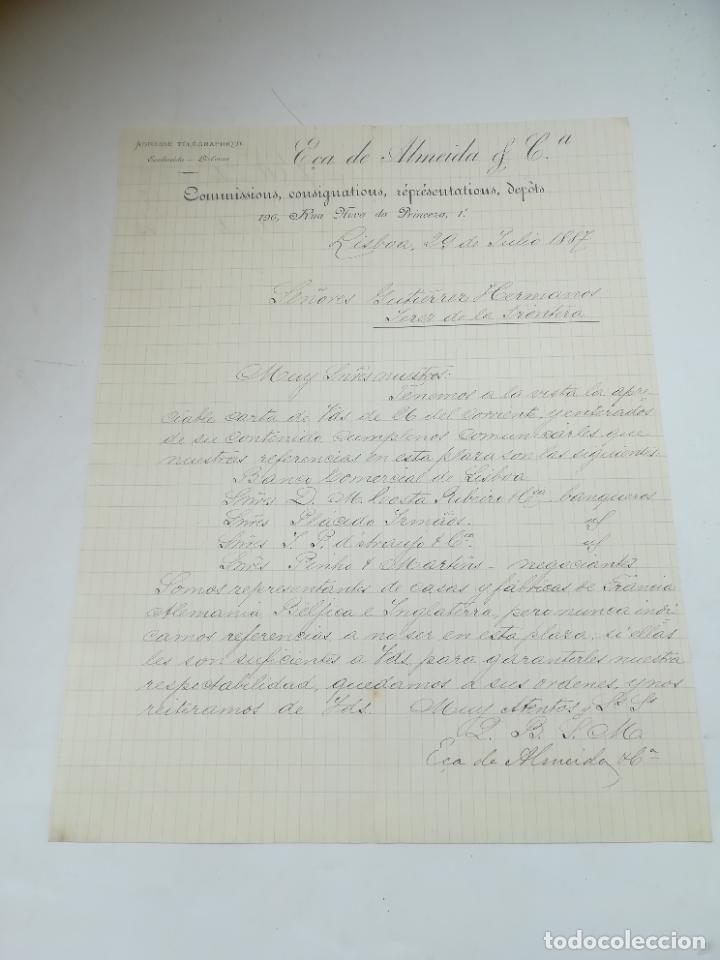 ADRESSE TÉLÉGRAPHIQUE
Lisbonne
Eça de Almeida & C.a
Commissions, consignations, réprésentations, depôts
196, Rua Nova da Princeza, 1.º
Lisboa, 29 de Julio 1887
Señores Gutiérrez Hermanos
Jerez de la Frontera
Muy Señres nuestros:
Tenemos a la vista la apre
ciable carta de Vds de 26 del corriente y enterados
de su contenido cumplenos comunicarles que
nuestras referencias en esta plaza son las siguientes
Banco Comercial de Lisboa
Señres D. M. Costa Ribeiro & Ca banqueros
Señres Plácido Irmãos
Señres J. P. d'Araujo & Ca
Señres Pinho & Martins - negociantes
Somos representantes de casas y fábricas de Francia
Alemania, Bélfica e Inglaterra, pero nunca indi
camos referencias, a no ser en esta plaza, si ellas
les son suficientes a Vds. para garanterles nuestra
respectabilidad, quedamos a sus ordenes, y nos
reitiramos de Vds. Muy Atentos y Ss Ss
Q. B. S. M
Eça de Almeida & Ca
todocoleccion